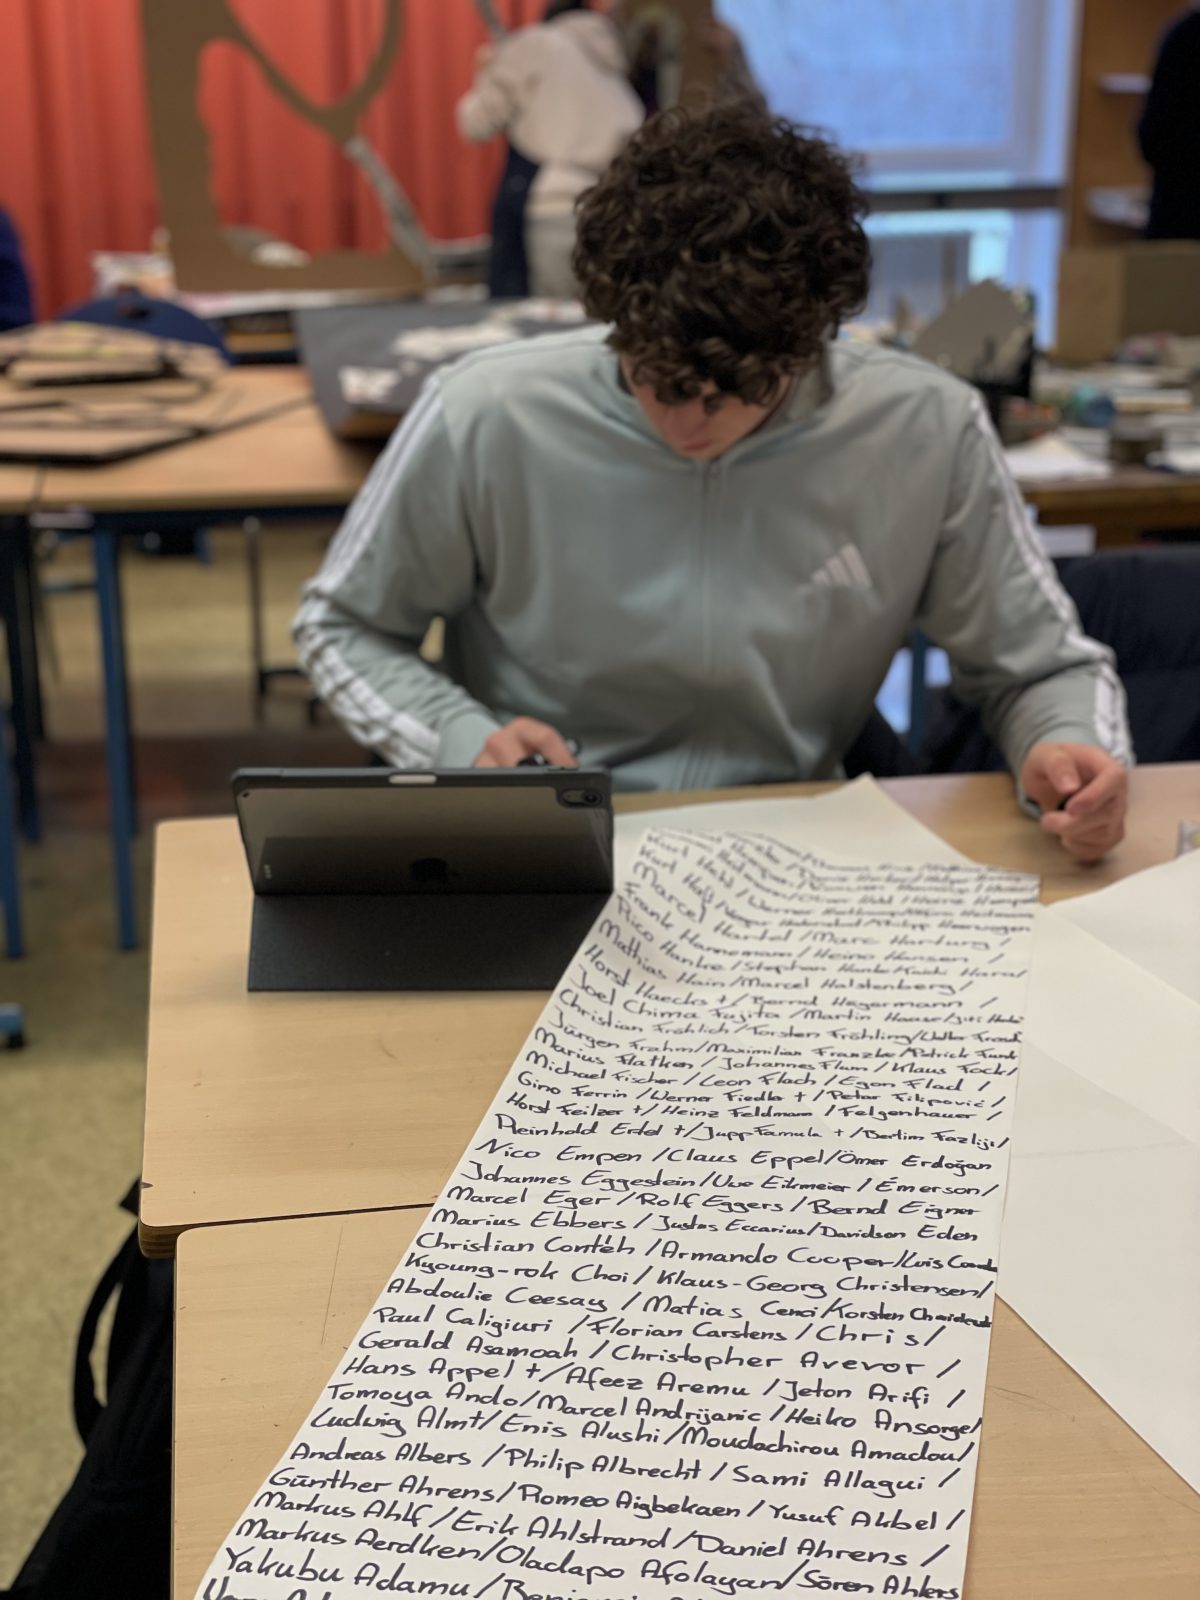 Kurt Hehl / Werner
Kurt Haß /
Marcel Hartel / Marc Hartung /
Frank Hannemann / Heino Hansen /
Rico Hanke / Stephan Hanke Hara /
Mathias Hain / Marcel Halstenberg /
Horst Haecks + / Bernd Hegermann /
Joel Chima Fujita / Martin Haase /
Christian Fröhlich / Torsten Fröhling /
Jürgen Frahm / Maximilian Franzke / Patrick Funk
Marius Flatken / Johannes Flum / Klaus Fock /
Michael Fischer / Leon Flach / Egon Flad /
Gino Ferrin / Werner Fiedler + / Petar Filipović /
Horst Feilzer + / Heinz Feldmann / Felgenhauer /
Reinhold Ertel + / Jupp Famula + / Bertim Fazliji /
Nico Empen / Claus Eppel / Ömer Erdoğan
Johannes Eggestein / Uwe Eikmeier / Émerson /
Marcel Eger / Rolf Eggers / Bernd Eigner
Marius Ebbers / Justus Eccarius / Davidson Eden
Christian Conteh / Armando Cooper / Luis
Kyoung-rok Choi / Klaus-Georg Christensen /
Abdoulie Ceesay / Matias Cenci / Korsten
Paul Caligiuri / Florian Carstens / Chris /
Gerald Asamoah / Christopher Avevor /
Hans Appel + / Afeez Aremu / Jeton Arifi /
Tomoya Ando / Marcel Andrijanic / Heiko Ansorge /
Ludwig Alm + / Enis Alushi / Moudachirou Amadou /
Andreas Albers / Philip Albrecht / Sami Allagui /
Günther Ahrens / Romeo Aigbekaen / Yusuf Akbel /
Markus Ahlf / Erik Ahlstrand / Daniel Ahrens /
Markus Aerdken / Oladapo Afolayan / Sören Ahlers
Yakubu Adamu /